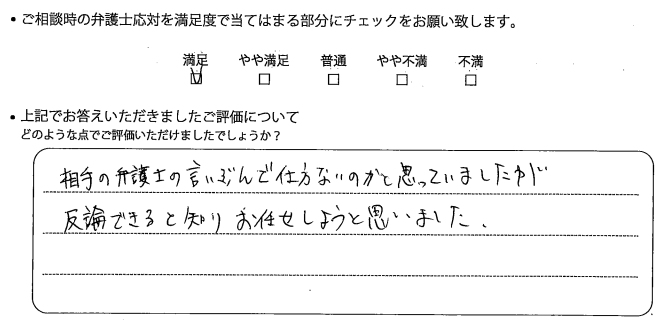 • ご相談時の弁護士応対を満足度で当てはまる部分にチェックをお願い致します。
満足 やや満足 普通 やや不満 不満
☑ □ □ □ □
• 上記でお答えいただきましたご評価について
どのような点でご評価いただけましたでしょうか？
相手の弁護士の言いぶんで仕方ないのかと思っていましたが
反論できると知りお任せしようと思いました.